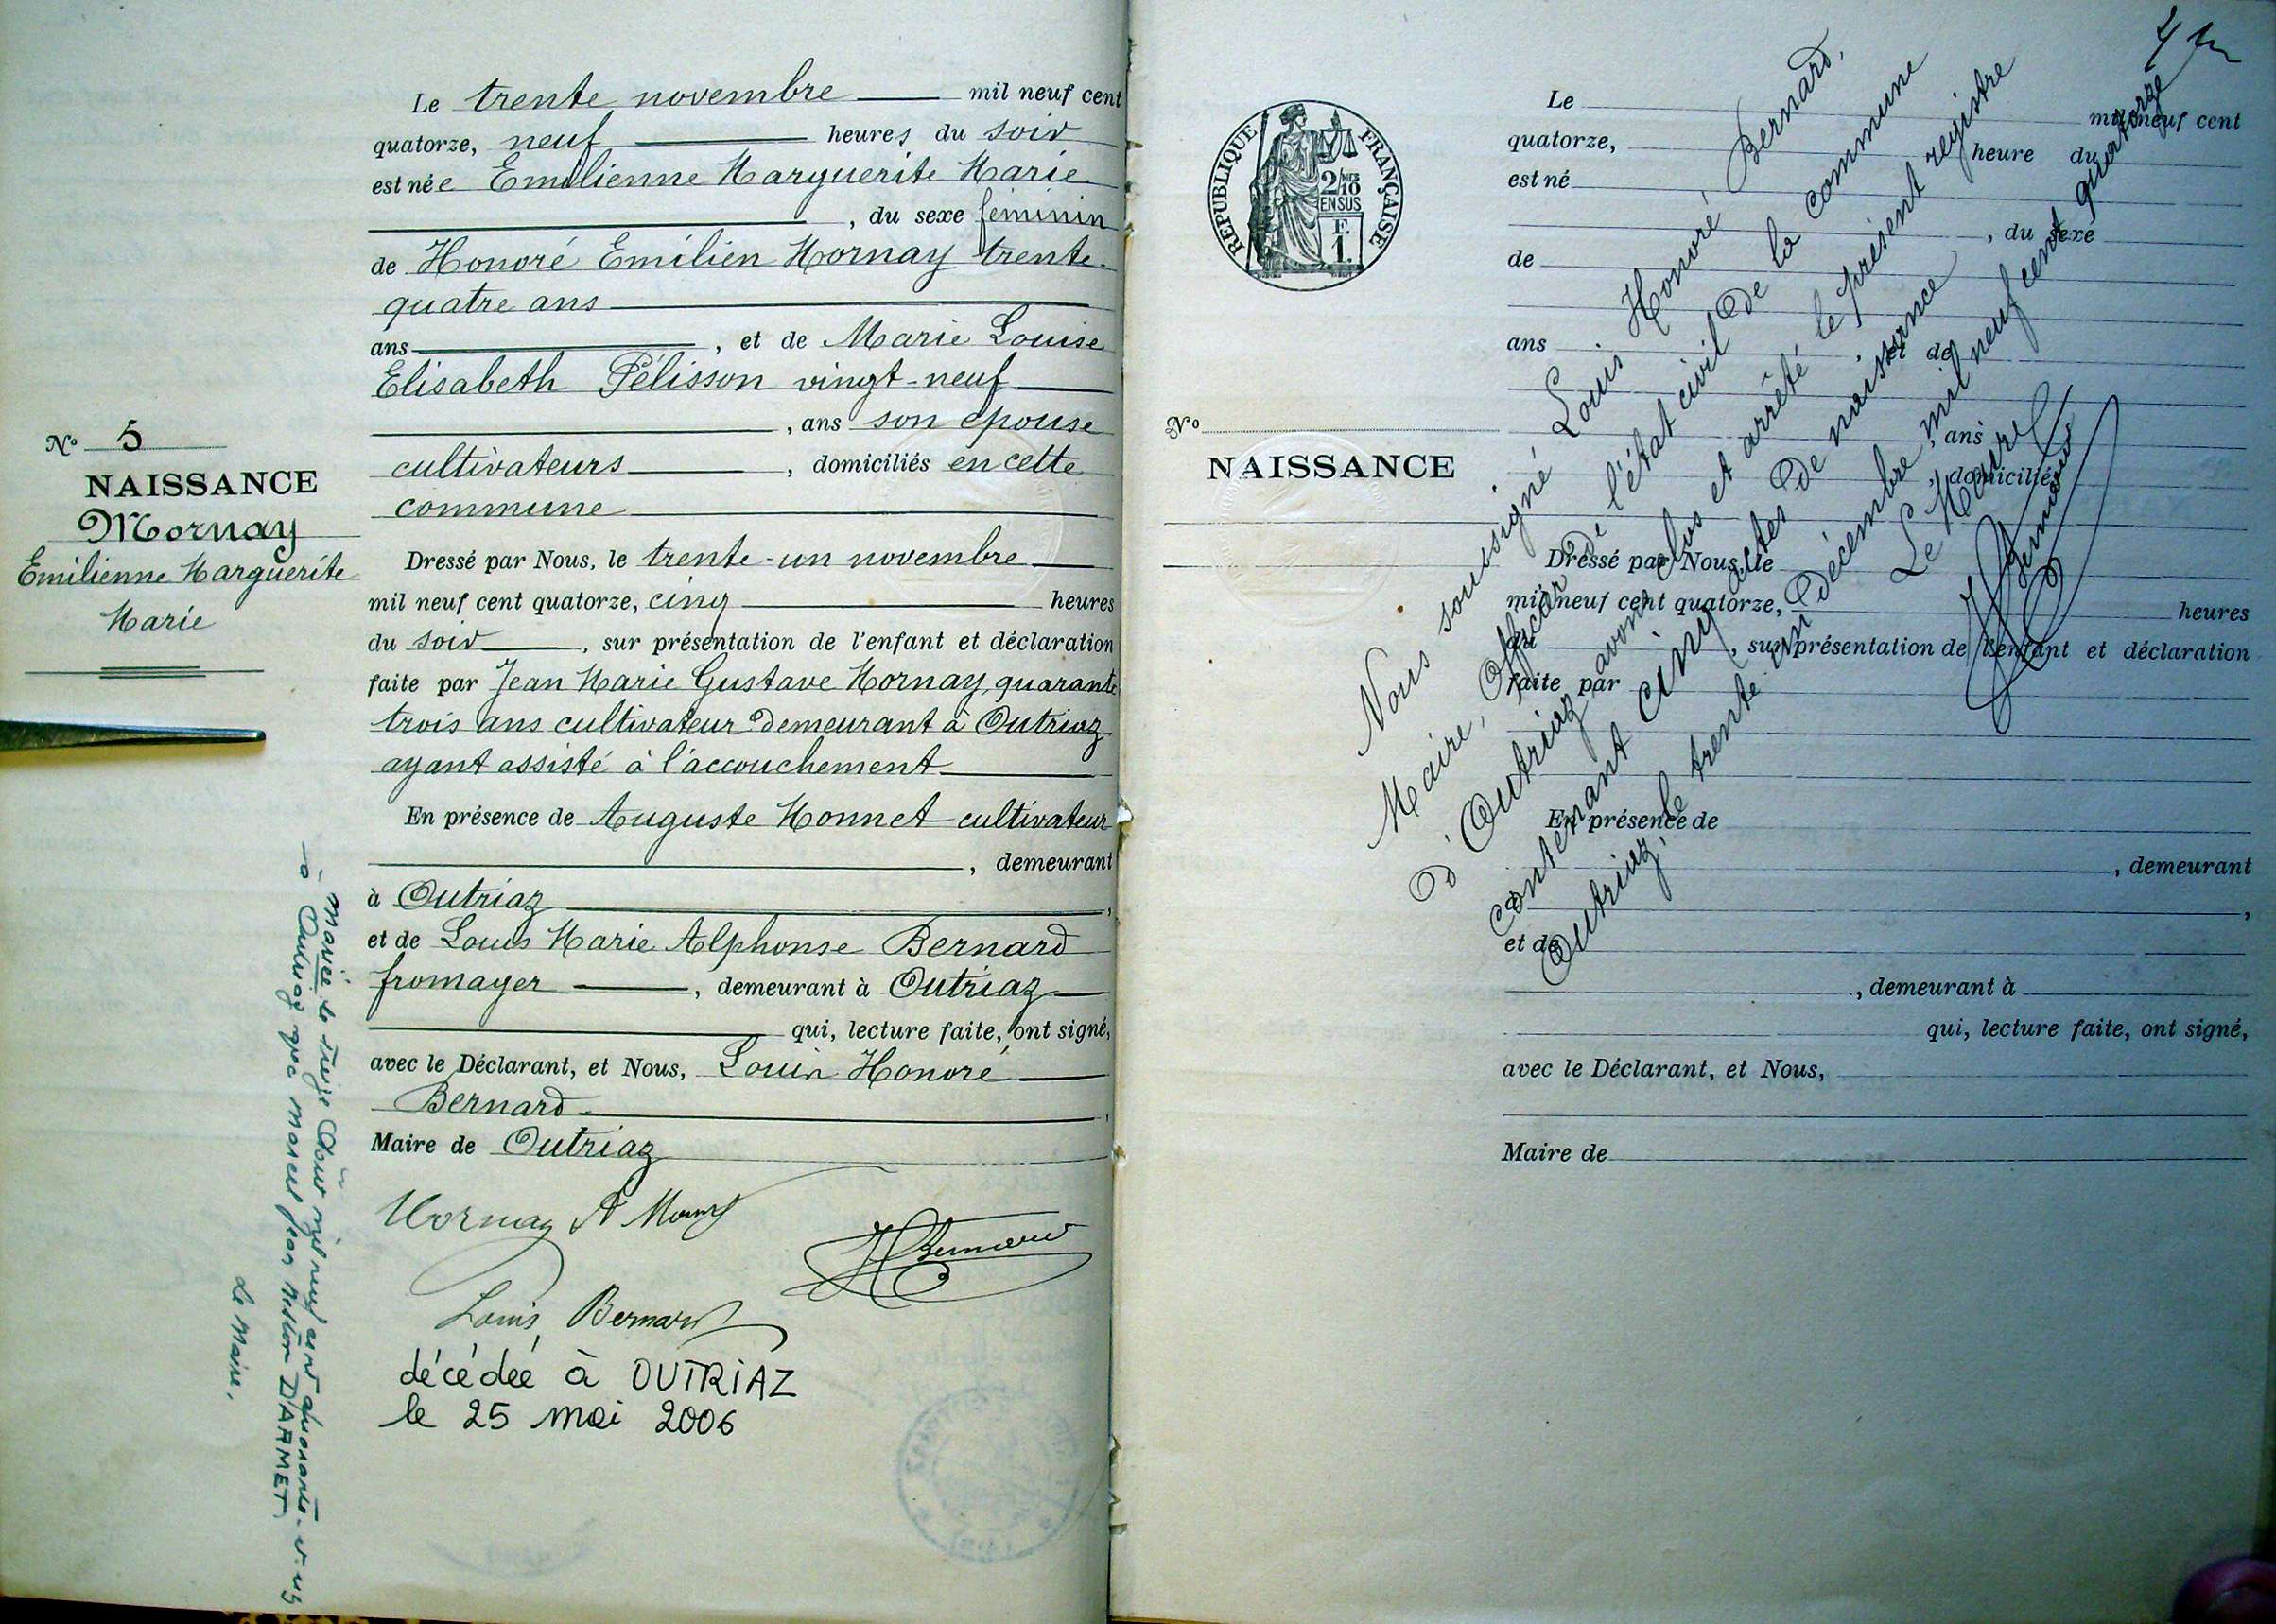 Le trente novembre mil neuf cent
quatorze, neuf heures du soir
est née Emilienne Marguerite Marie
, du sexe féminin
de Honoré Emilien Mornay trente
quatre ans
ans , et de Marie Louise
Elisabeth Pélisson vingt-neuf
, ans son épouse
cultivateurs , domiciliés en cette
commune
N° 5
NAISSANCE
Mornay
Emilienne Marguerite
Marie
Dressé par Nous, le trente-un novembre
mil neuf cent quatorze, cinq heures
du soir , sur présentation de l'enfant et déclaration
faite par Jean Marie Gustave Mornay, quarante
trois ans cultivateur demeurant à Outriaz
ayant assisté à l'accouchement
En présence de Auguste Monnet cultivateur
, demeurant
à Outriaz ,
et de Louis Marie Alphonse Bernard
fromager , demeurant à Outriaz
qui, lecture faite, ont signé,
avec le Déclarant, et Nous, Louis Honoré
Bernard ,
Maire de Outriaz
Mornay A Monnet
HBernard
Louis Bernard
décédée à OUTRIAZ
le 25 mai 2006
mariée le août mil neuf cent quarante
à Outriaz avec DARMET
Le Maire.
4
REPUBLIQUE FRANÇAISE
2/10 EN SUS
F. 1.
Le mil neuf cent
quatorze, heure du
est né
, du sexe
de
ans , et de
, ans
N°
NAISSANCE
, domiciliés
Dressé par Nous, le
mil neuf cent quatorze, heures
du , sur présentation de l'enfant et déclaration
faite par
En présence de
, demeurant
à ,
et de
, demeurant à
qui, lecture faite, ont signé,
avec le Déclarant, et Nous,
Maire de
Nous soussigné Louis Honoré Bernard,
Maire, Officier de l'état civil de la commune
d'Outriaz avons clos et arrêté le présent registre
contenant cinq actes de naissance
Outriaz, le trente un décembre mil neuf cent quatorze
Le Maire
HBernard